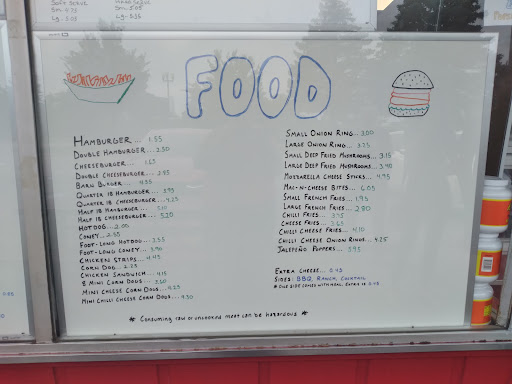 Soft Serve
Sm. 4.75
Lg. 5.25
Sm. 5.05
Lg. 5.55
FOOD
Hamburger... 1.55
Double Hamburger... 2.50
Cheeseburger... 1.65
Double Cheeseburger... 2.85
Barn Burger... 4.55
Quarter lb Hamburger... 3.95
Quarter lb Cheeseburger... 4.25
Half lb Hamburger... 5.10
Half lb Cheeseburger... 5.20
Hot Dog... 2.00
Coney... 2.55
Foot-Long Hotdog... 3.55
Foot-Long Coney... 3.90
Chicken Strips... 4.45
Corn Dog... 2.25
Chicken Sandwich... 4.15
8 Mini Corn Dogs... 3.60
Mini Cheese Corn Dogs... 4.25
Mini Chili Cheese Corn Dogs... 4.30
Small Onion Ring... 3.00
Large Onion Ring... 3.75
Small Deep Fried Mushrooms... 3.15
Large Deep Fried Mushrooms... 3.90
Mozzarella Cheese Sticks... 4.95
Mac-n-Cheese Bites... 6.05
Small French Fries... 1.95
Large French Fries... 2.80
Chili Fries... 3.75
Cheese Fries... 3.65
Chili Cheese Fries... 4.10
Chilli Cheese Onion Rings... 4.25
Jalepeño Poppers... 5.95
Extra Cheese... 0.45
Sides: BBQ, Ranch, Cocktail
* One side comes with meal, Extra is 0.65
* Consuming raw or uncooked meat can be hazardous *